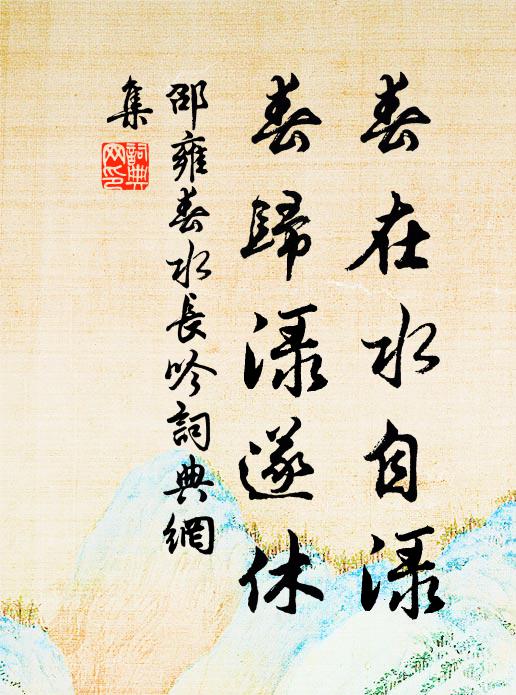 春在水自渌
春歸渌遂休
邵雍春水長吟詞典網
集
詞典網印